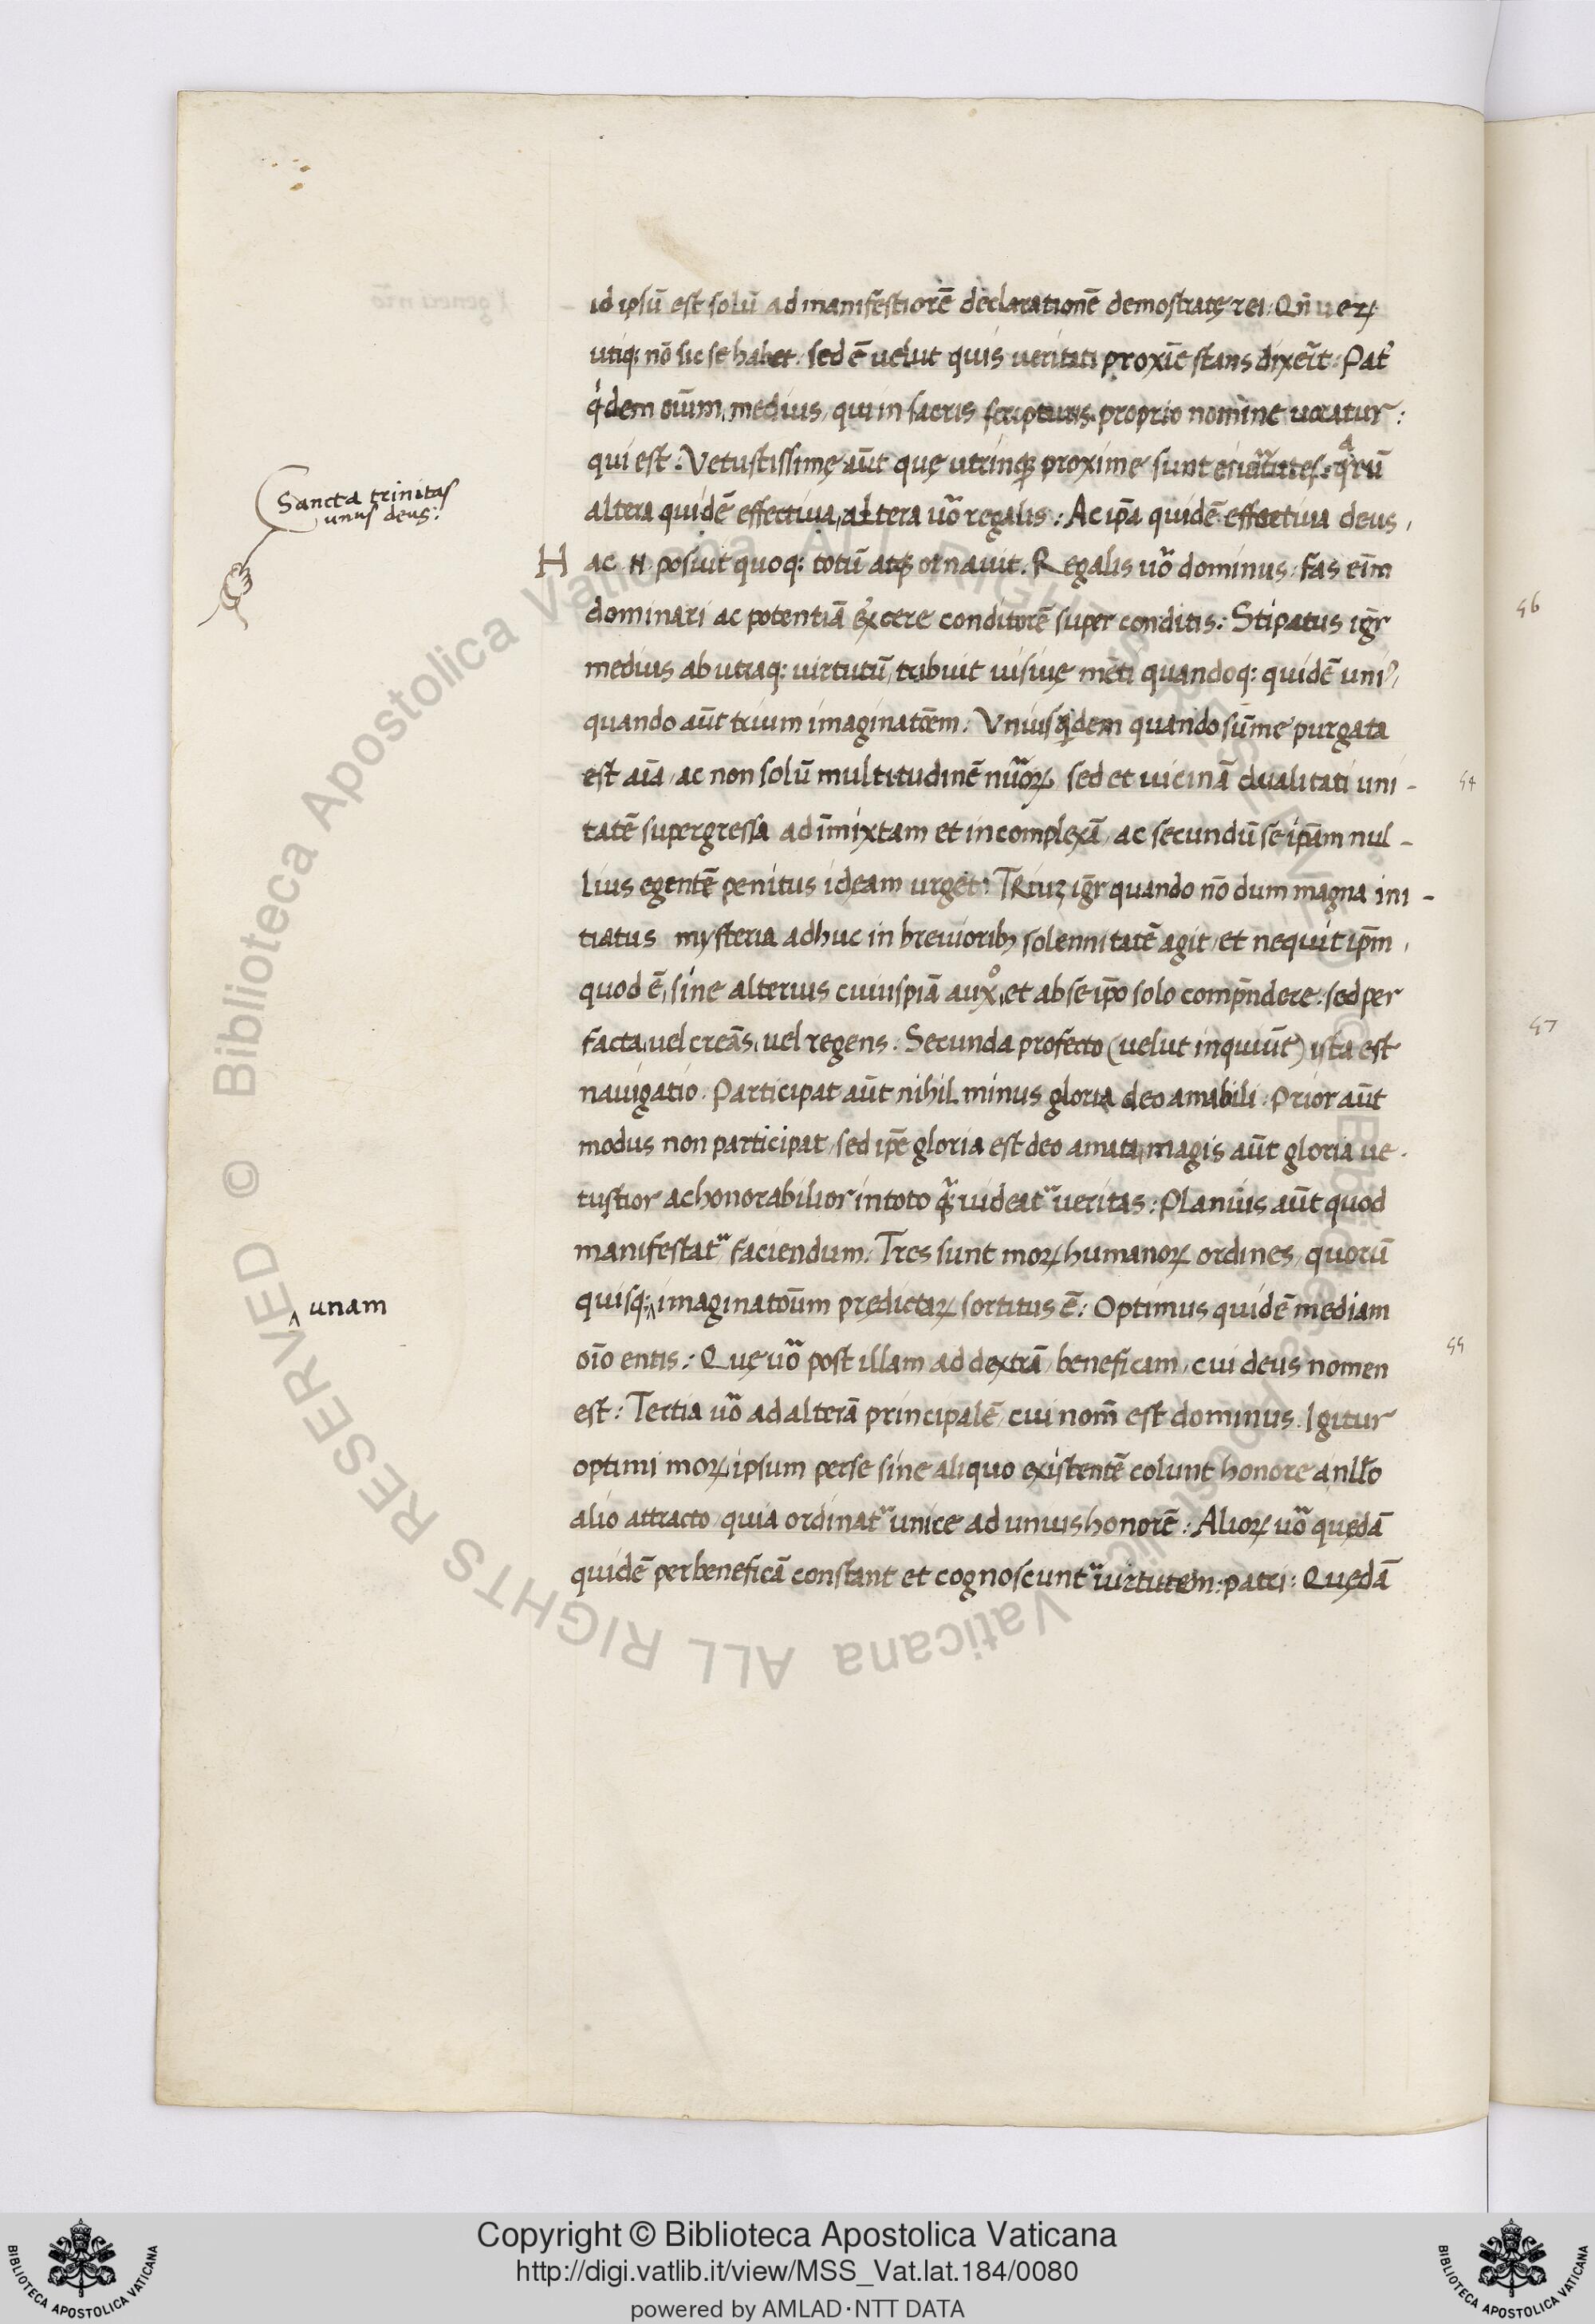 id ipsū est solū ad manifestiorē declarationē demostratę rei. Qn̄ uerꝝ
utiq; nō sic se habet. sed ē uelut quis veritati proxīe stans dixerīt: Pat̄
qͥdem oīum, medius, qui in sacris scripturis proprio nomine uocatur:
qui est: Vetustissimę aūt quę utrinqꝫ proxime sunt
altera quidē effectiua, altera uͦo regalis: Ac ipā quidē effectiua deus,
H ac N posuit quoq; totū atqꝫ ornauit. Regalis uͦo dominus. fas eīm
dominari ac potentiā exͤrcere conditorē super conditis: Stipatus igr̄
medius ab utraq; uirtutū, tribuit uisiuę mēti quandoq; quidē uniꝰ,
quando aūt trium imaginatōem: Vnius qͥdem quando sūme purgata
est aīa, ac non solū multitudinē nūoꝝ sed et uicinā dualitati uni-
tatē supergressa ad īmixtam et incomplexā, ac secundū se ipām nul-
lius egentē penitus ideam urget: TRiuꝫ igr̄ quando nō dum magna ini-
tiatus mysteria adhuc in breuioribꝫ solennitatē agit, et nequit ipm̄,
quod ē, sine alterius cuiuspiā auxͦ, et ab se ipō solo comp̄ndere. sed per
facta, uel creās, uel regens: Secunda profecto (uelut inquiūt) ista est
nauigatio. Participat aūt nihil minus gloria deo amabili. Prior aūt
modus non participat, sed ipē gloria est deo amata, magis aūt gloria ue-
tustior ac honorabilior in toto qͣ uideatᵘ ueritas: Planius aūt quod
manifestatᵘ faciendum: Tres sunt moꝝ humanoꝝ ordines, quorū
quisq; ‸ imaginatōum predictaꝝ sortitus ē: Optimus quidē mediam
oīo entis: Quę uͦo post illam ad dextrā, beneficam, cui deus nomen
est: Tertia uͦo ad alterā principalē, cui nom̄ est dominus. Igitur
optimi moꝝ ipsum per se sine aliquo existentē colunt honore a nllo
alio attracto, quia ordinatᵘ unice ad unius honorē: Alioꝝ uͦo quędā
quidē per beneficā constant et cognoscuntᵘ uirtutem: patri: Quędā
Sancta trinitas
unus deus:
‸ unam
54
55
56
57
Copyright © Biblioteca Apostolica Vaticana
http://digi.vatlib.it/view/MSS_Vat.lat.184/0080
powered by AMLAD·NTT DATA
BIBLIOTECA APOSTOLICA VATICANA
BIBLIOTECA APOSTOLICA VATICANA
© Biblioteca Apostolica Vaticana ALL RIGHTS RESERVED